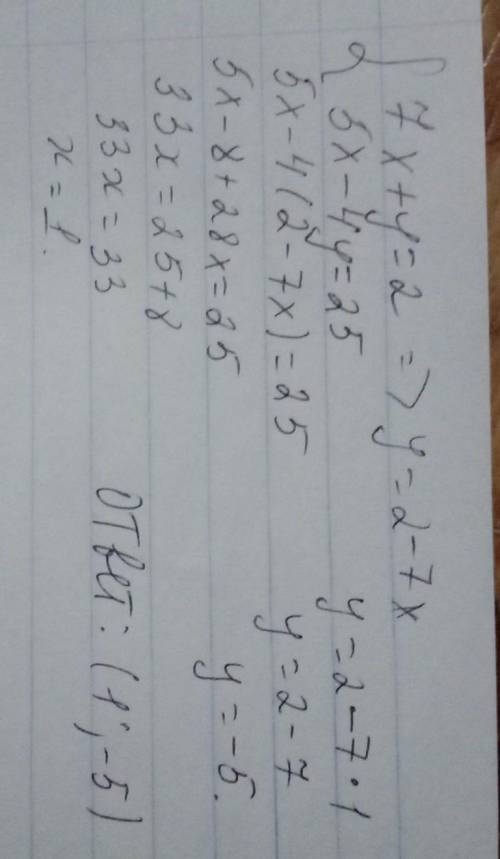 { 7x+y=2 => y=2-7x
5x-4y=25
5x-4(2-7x)=25
5x-8+28x=25
33x=25+8
33x=33
x=1.
y=2-7·1
y=2-7
y=-5.
Ответ: (1;-5)